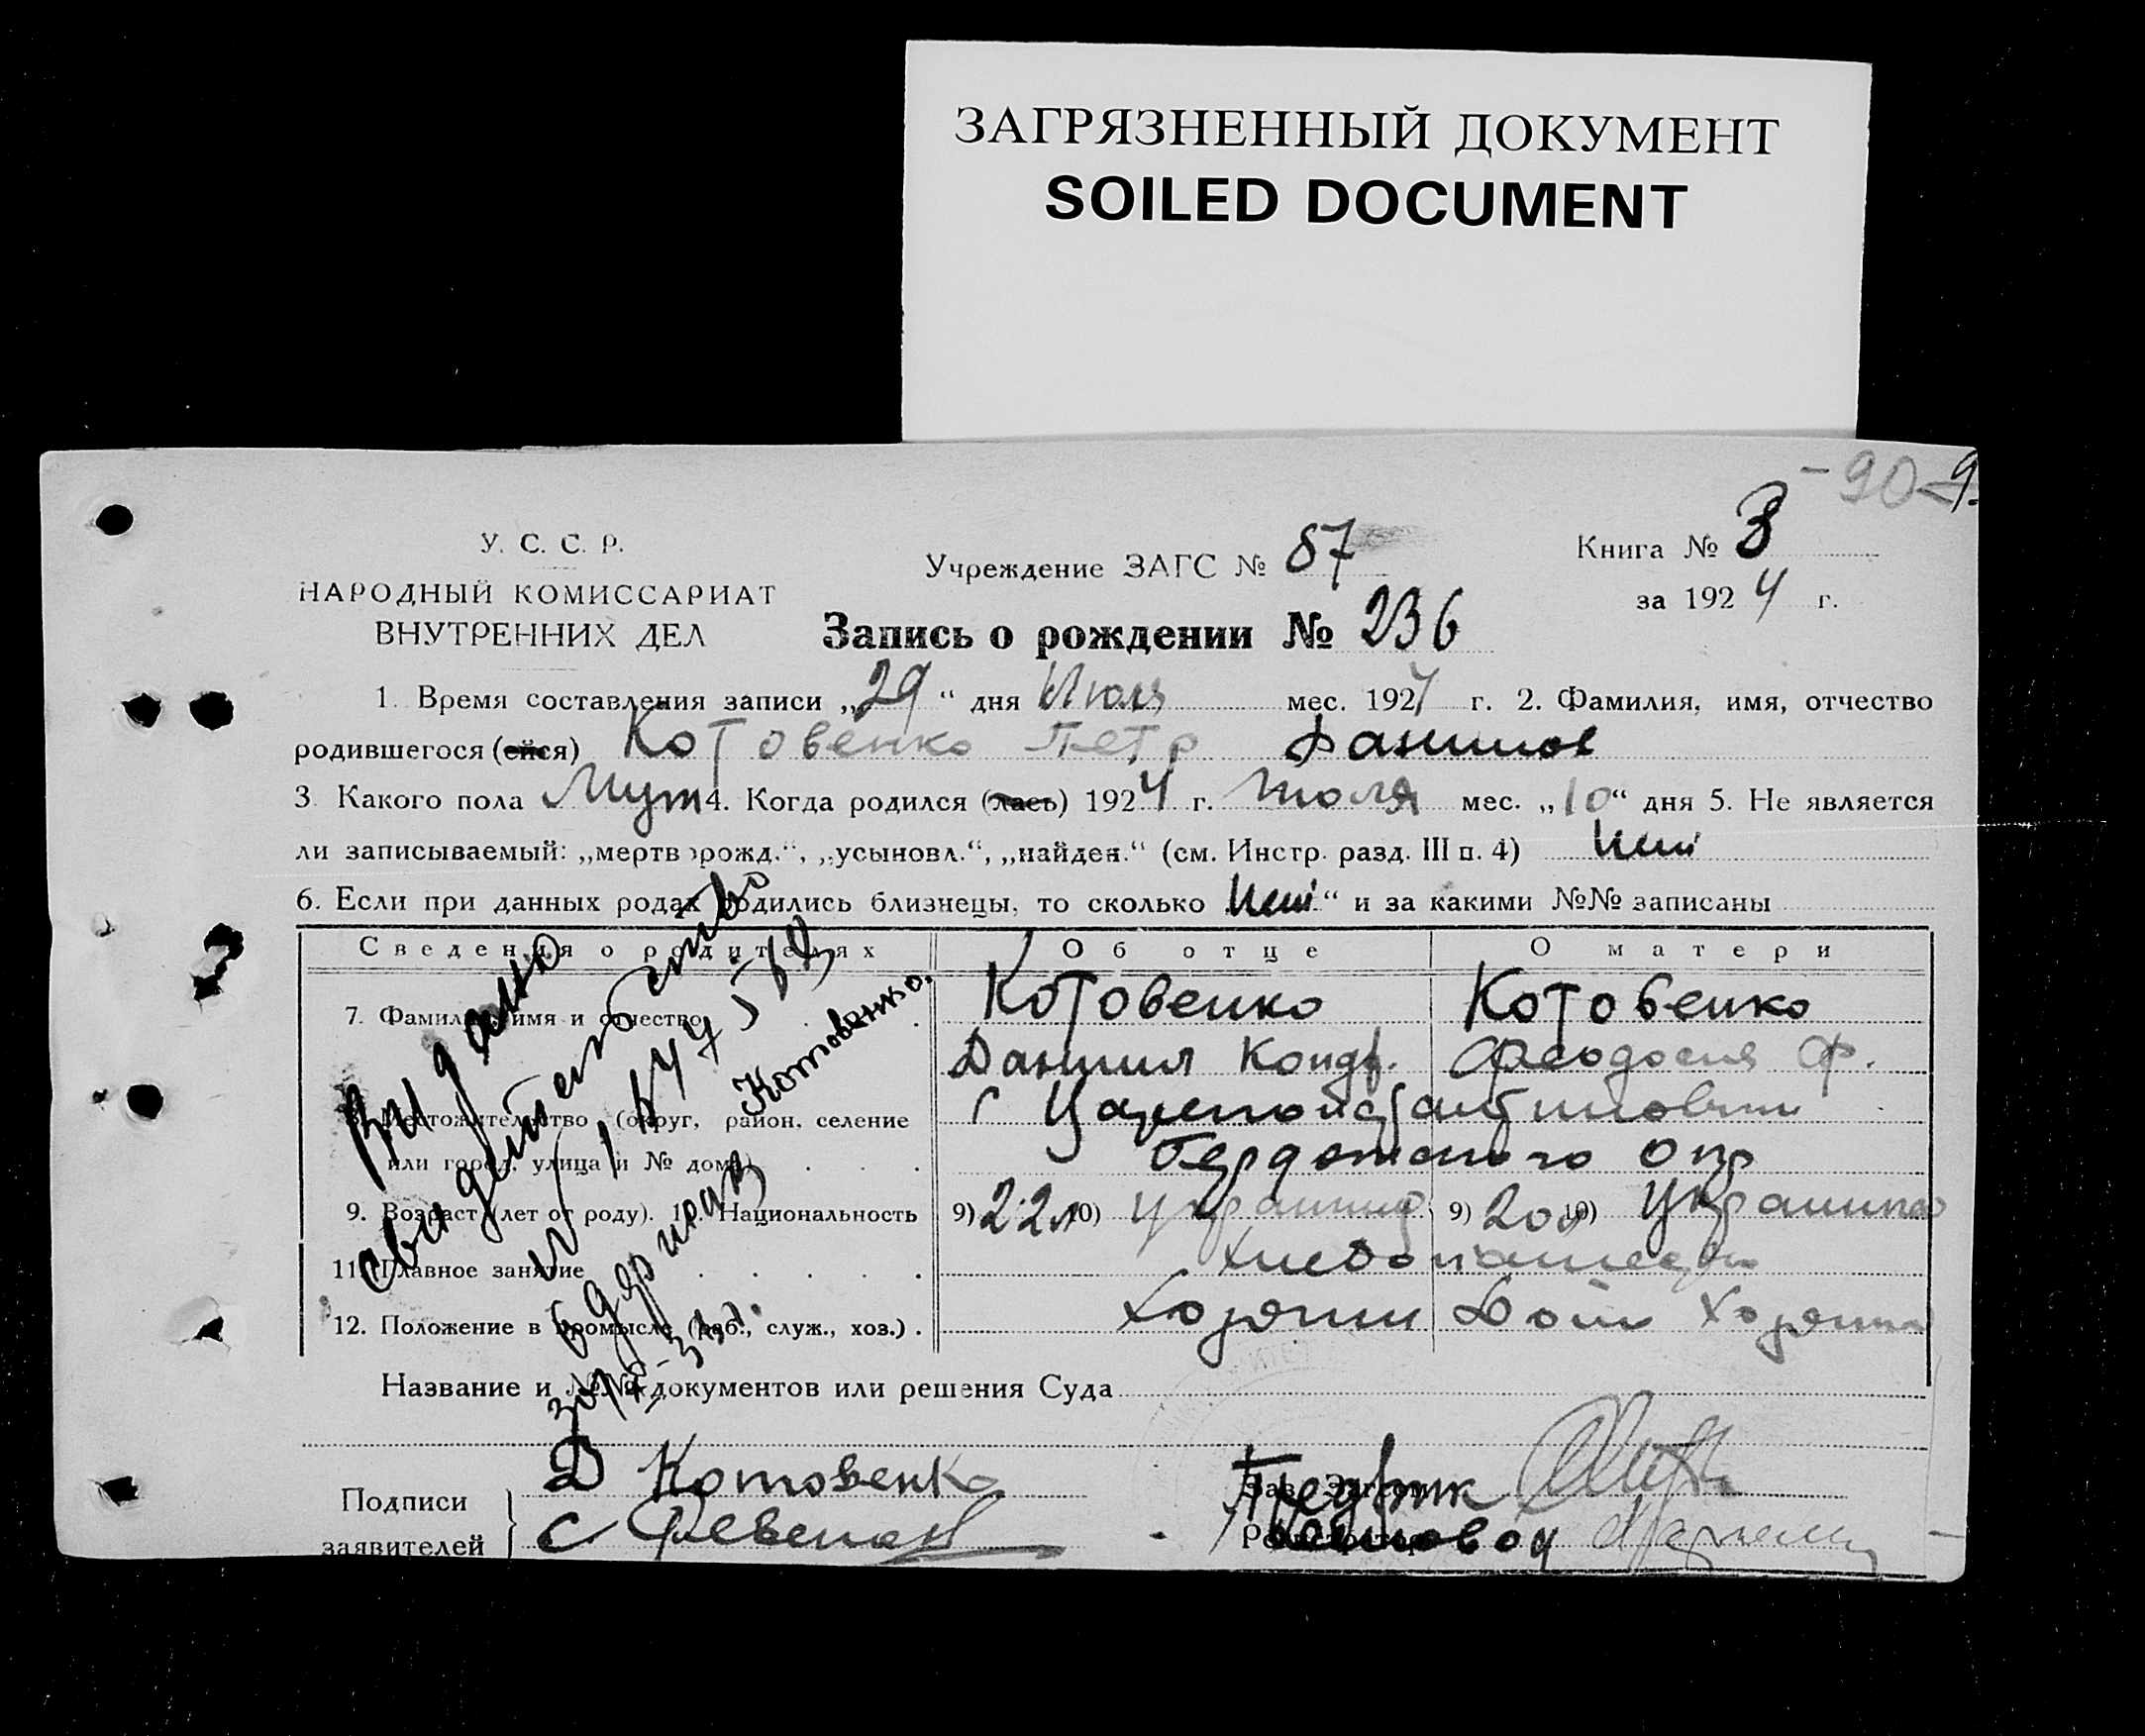 ЗАГРЯЗНЕННЫЙ ДОКУМЕНТ
SOILED DOCUMENT
-90-
У. С. С. Р.
НАРОДНЫЙ КОМИССАРИАТ
ВНУТРЕННИХ ДЕЛ
Учреждение ЗАГС № 87
Книга № 3
за 1924 г.
Запись о рождении № 236
1. Время составления записи „29“ дня Июля мес. 1924 г. 2. Фамилия, имя, отчество
родившегося (ейся) Котовенко Петр Данилов
3. Какого пола Муж 4. Когда родился (лась) 1924 г. Июля мес. „10“ дня 5. Не является
ли записываемый: „мертворожд.“, „усыновл.“, „найден.“ (см. Инстр. разд. III п. 4)
6. Если при данных родах родились близнецы, то сколько “ и за какими №№ записаны
Сведения о родителях
Об отце
О матери
7. Фамилия, имя и отчество
Котовенко
Даниил Кондр.
Котовенко
Феодосия Ф.
8. Местожительство (округ, район, селение
или город, улица и № дома)
с Цареконстантиновки
Бердянского Окр
9. Возраст (лет от роду). 10. Национальность
9) 22 л 10) 9) 20 л 10)
11. Главное занятие
12. Положение в промысле (раб., служ., хоз.)
Хозяин Дом Хозяин
Название и №№ документов или решения Суда
Выдано
свидетельство
Котовенко.
Подписи
заявителей
Д Котовенко
С
Зав. Загсом
Регистратор